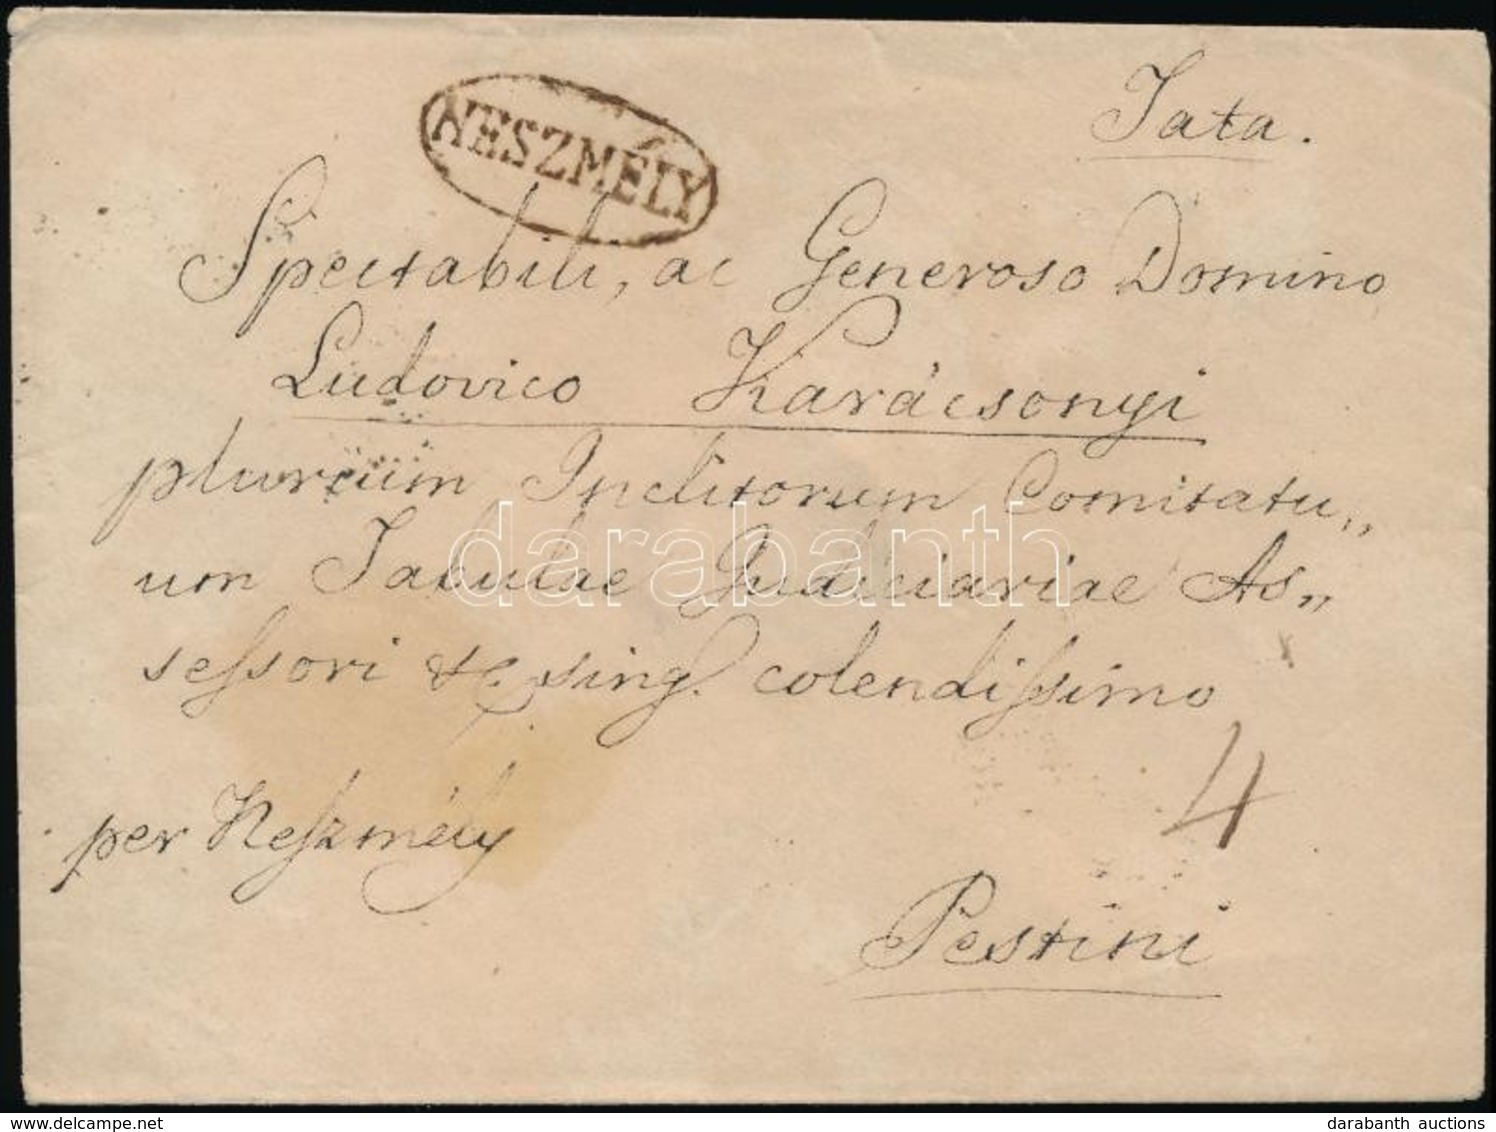 Tata.
NESZMÉLY
Spectabili, ac Generoso Domino
Ludovico Karácsonyi
plurium Inclitorum Comitatu„
um Tabulae Judiciariae As„
sessori &c sing. colendissimo
4
per Neszmély
Pestini
darabanth
darabanth auctions